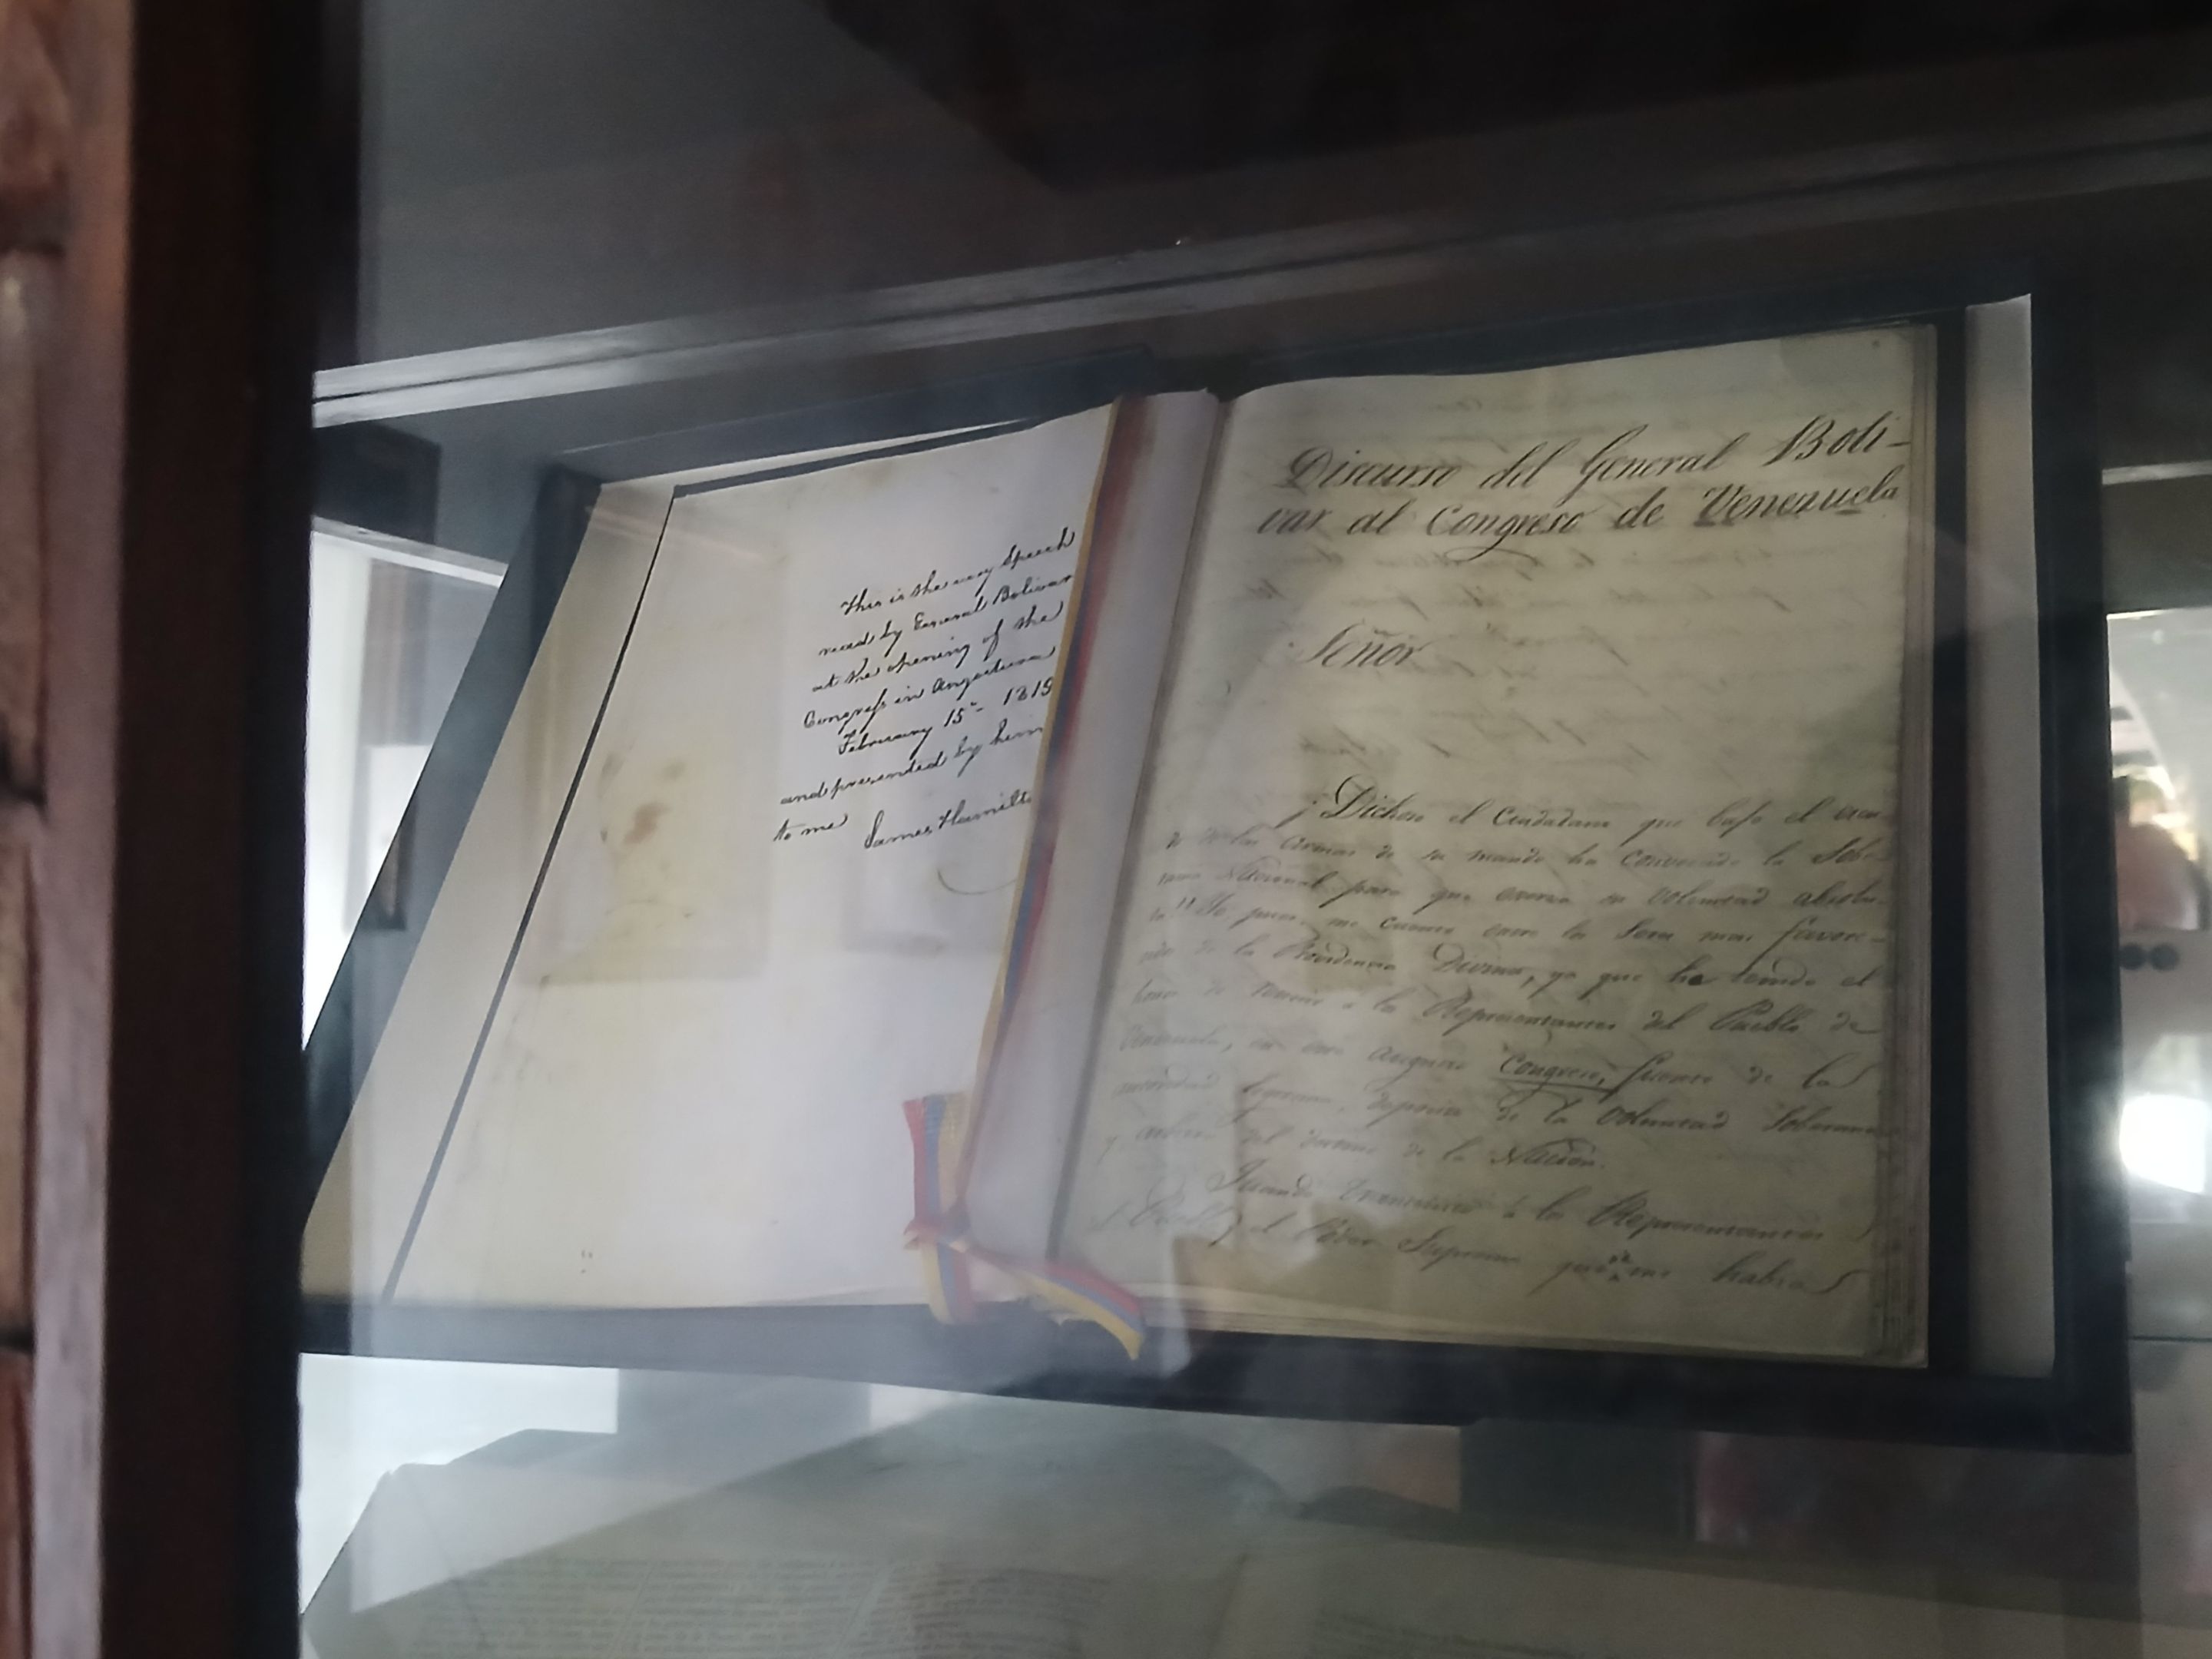 This is the very Speech
read by General Bolivar
at the opening of the
Congress in Angostura
February 15th - 1819
and presented by him
to me James Hamilt
Discurso del General Boli-
var al Congreso de Venezuela
Señor
¡Dichoso el Ciudadano que bajo el escu-
do de las armas de su mando ha convocado la Sobe-
rania Nacional para que exerza su voluntad absolu-
ta!! Yo pues me cuento entre los Seres mas favore-
cidos de la Providencia Divina, ya que he tenido el
honor de reunir á los Representantes del Pueblo de
Venezuela, en este augusto Congreso, fuente de la
autoridad legitima, deposito de la voluntad Soberana
y arbitro del destino de la Nación.
á los Representantes
el Poder Supremo que me habia